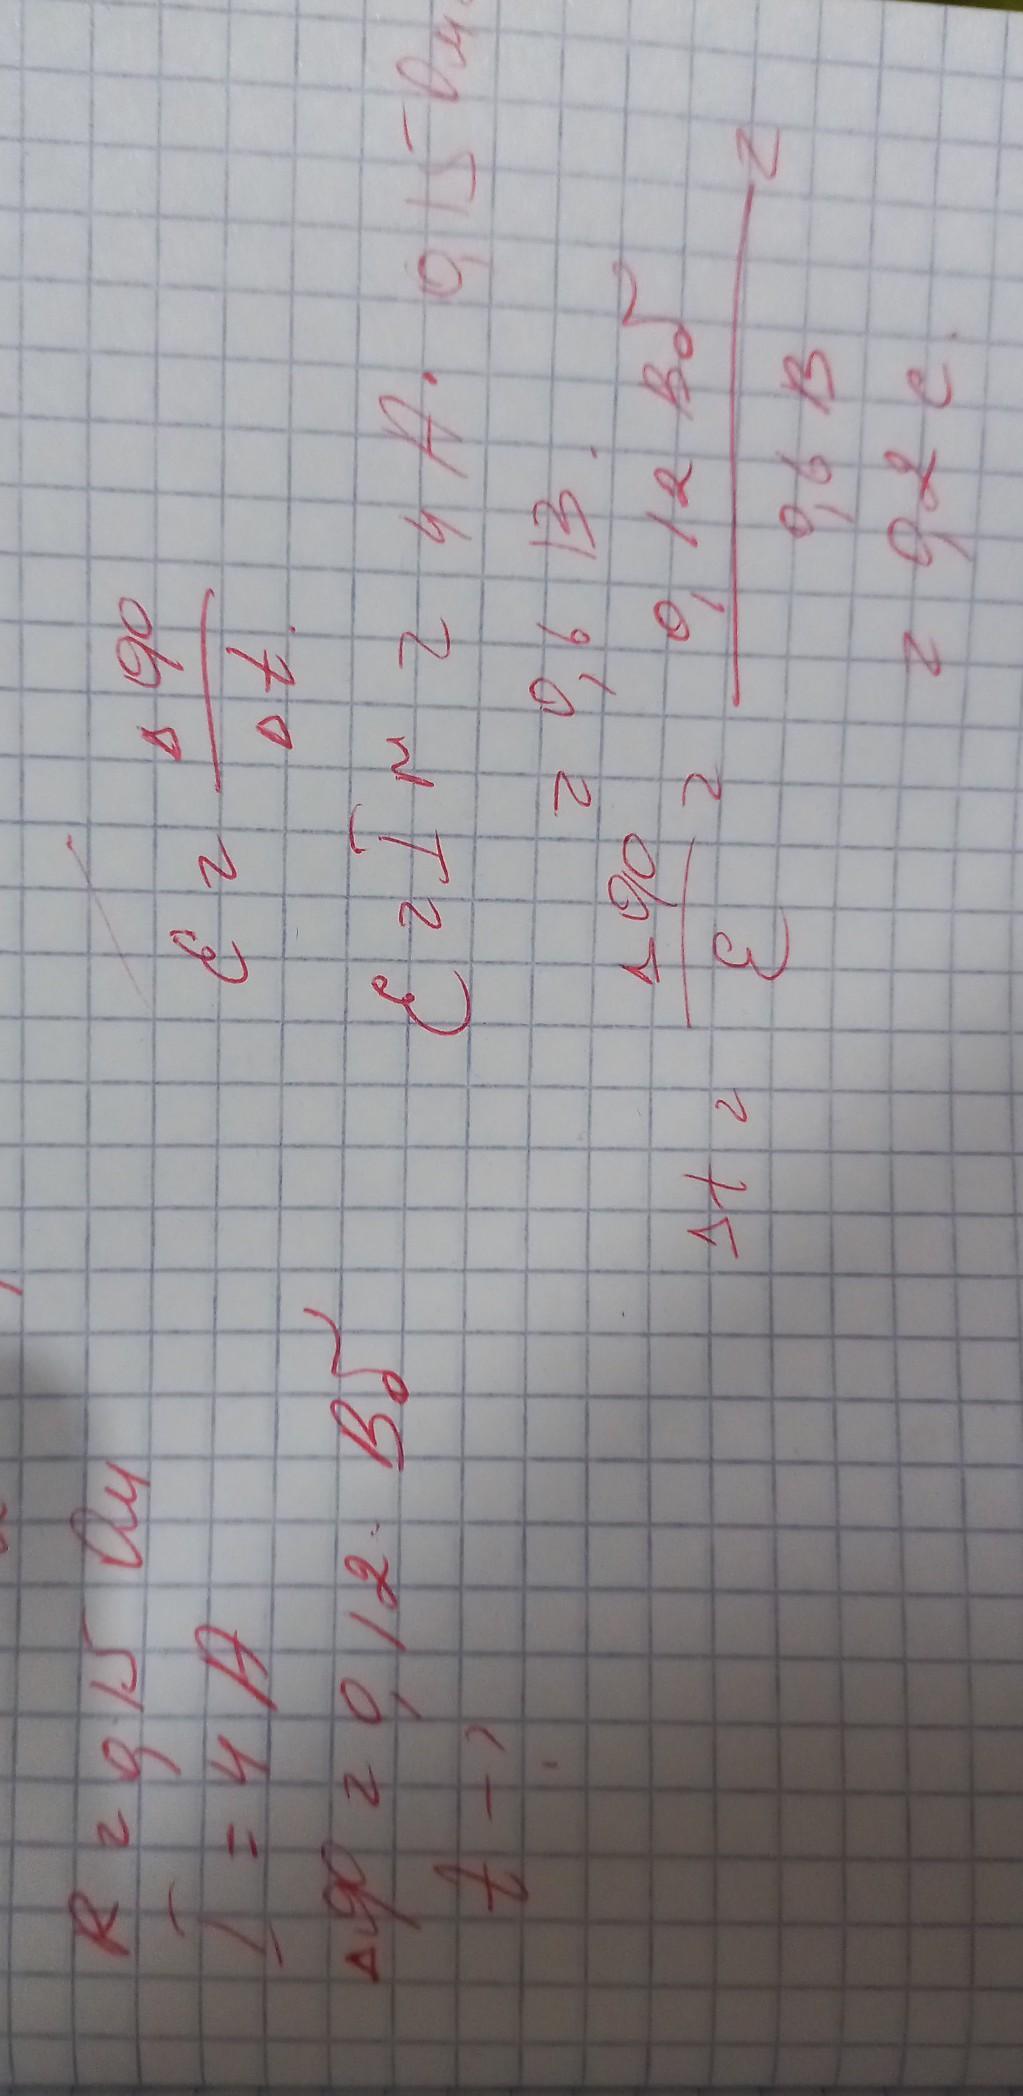 R = 0,15 Ом
I = 4 А
Δφ = 0,12 Вб
t - ?
ε = Δφ / Δt.
ε = I r = 4 А · 0,15 Ом =
= 0,6 В.
Δt = Δφ / ε = 0,12 Вб / 0,6 В =
= 0,2 с.